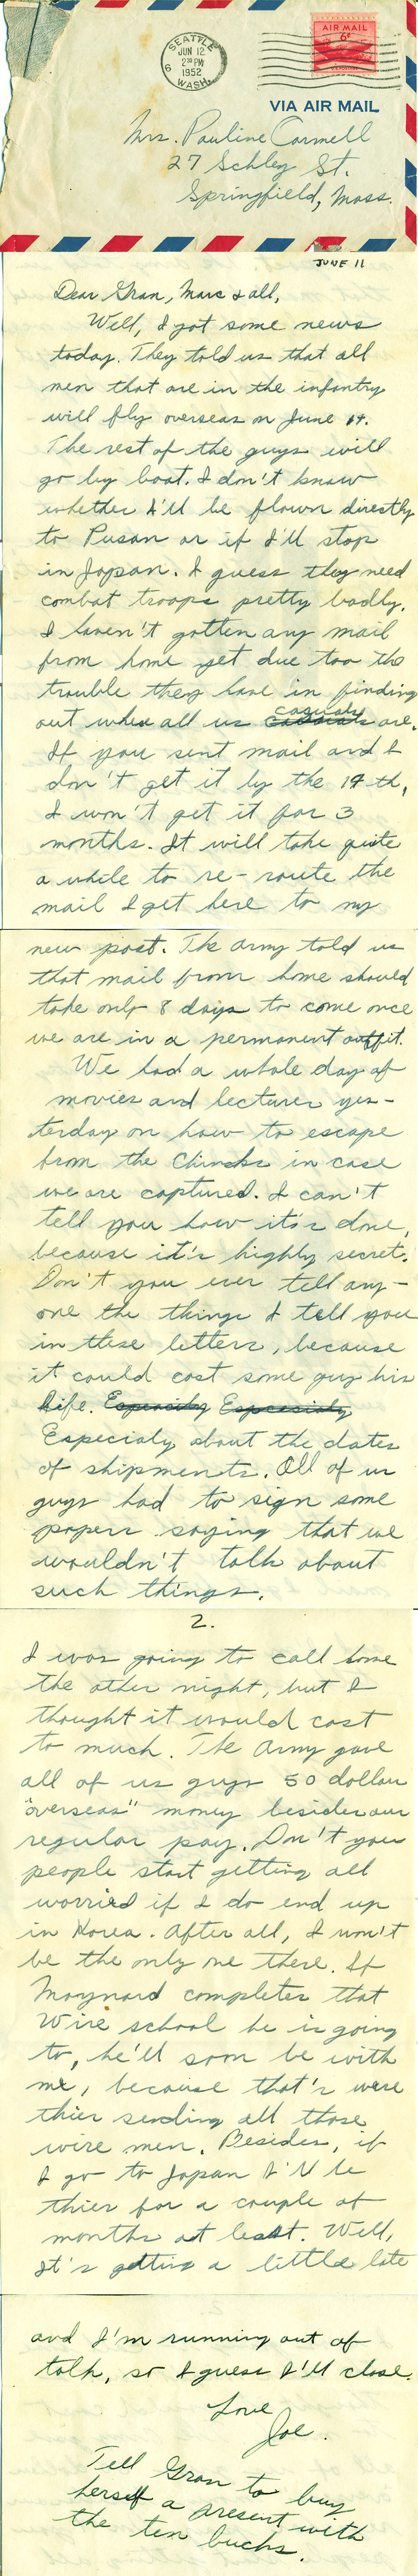 SEATTLE
JUN 12
2 30 PM
1952
WASH.
6
AIR MAIL
6¢
VIA AIR MAIL
Mrs. Pauline Carmell
27 Schley St.
Springfield, Mass.
JUNE 11
Dear Gran, Marc & all,
Well, I got some news
today. They told us that all
men that are in the infantry
will fly overseas on June 14.
The rest of the guys will
go by boat. I don't know
whether I'll be flown directly
to Pusan or if I'll stop
in Japan. I guess they need
combat troops pretty badly.
I haven't gotten any mail
from home yet due too the
trouble they have in finding
out where all us casuals are.
If you sent mail and I
don't get it by the 14th,
I won't get it for 3
months. It will take quite
a while to re-route the
mail I get here to my
new post. The army told us
that mail from home should
take only 8 days to come once
we are in a permanent outfit.
We had a whole day of
movies and lectures yes-
terday on how to escape
from the Chinks in case
we are captured. I can't
tell you how it's done,
because it's highly secret.
Don't you ever tell any-
one the things I tell you
in these letters, because
it could cost some guy his
life.
Especialy about the dates
of shipments. All of us
guys had to sign some
papers saying that we
wouldn't talk about
such things.
2.
I was going to call home
the other night, but I
thought it would cost
to much. The Army gave
all of us guys 50 dollars
"overseas" money besides our
regular pay. Don't you
people start getting all
worried if I do end up
in Korea. After all, I won't
be the only one there. If
Maynard completes that
Wire school he is going
to, he'll soon be with
me, because that's were
thier sending all those
wire men. Besides, if
I go to Japan I'll be
thier for a couple of
months at least. Well,
It's getting a little late
and I'm running out of
talk, so I guess I'll close.
Love
Joe.
Tell Gran to buy
herself a present with
the ten bucks.